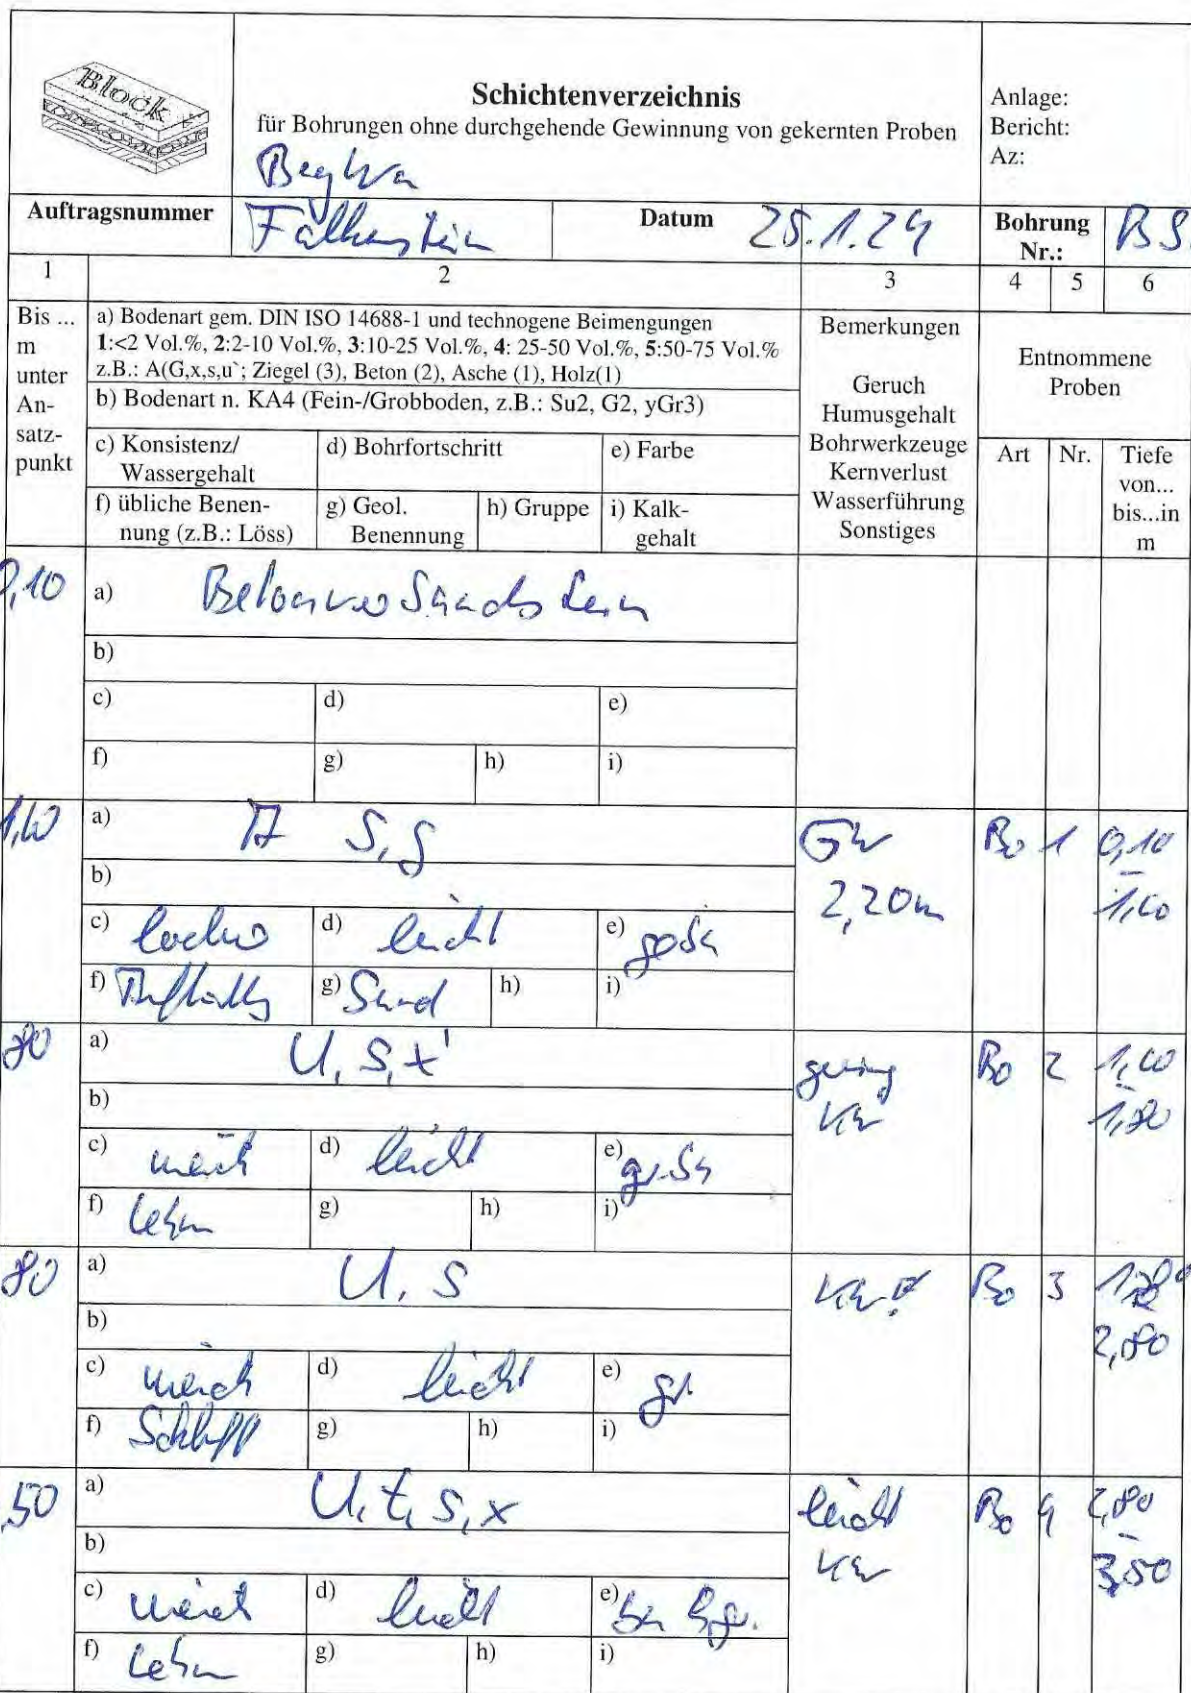 Block
Schichtenverzeichnis
für Bohrungen ohne durchgehende Gewinnung von gekernten Proben
Anlage:
Bericht:
Az:
Auftragsnummer
Falkenstein
Datum 25.1.24
Bohrung Nr.: BS
1 2 3 4 5 6
Bis ... m unter An-satz-punkt
a) Bodenart gem. DIN ISO 14688-1 und technogene Beimengungen
1:<2 Vol.%, 2:2-10 Vol.%, 3:10-25 Vol.%, 4: 25-50 Vol.%, 5:50-75 Vol.%
z.B.: A(G,x,s,u`; Ziegel (3), Beton (2), Asche (1), Holz(1)
b) Bodenart n. KA4 (Fein-/Grobboden, z.B.: Su2, G2, yGr3)
c) Konsistenz/
Wassergehalt
d) Bohrfortschritt
e) Farbe
f) übliche Benen-
nung (z.B.: Löss)
g) Geol.
Benennung
h) Gruppe
i) Kalk-
gehalt
Bemerkungen
Geruch
Humusgehalt
Bohrwerkzeuge
Kernverlust
Wasserführung
Sonstiges
Entnommene
Proben
Art
Nr.
Tiefe
von...
bis...in
m
0,10
a)
b)
c) d) e)
f) g) h) i)
1,60
a) A S,g
GW
2,20m
Bo 1 0,10
-
1,60
b)
c) locker d) leicht e)
f) Auffüllg g) Sand h) i)
80
a) U, s, x'
gering
KW
Bo 2 1,60
-
1,80
b)
c) weich d) leicht e) gr.sch
f) Lehm g) h) i)
80
a) U, s
KW
Bo 3 1,80
2,80
b)
c) weich d) leicht e) gr
f) Schluff g) h) i)
,50
a) U, t, s, x
leicht
KW
Bo 4 2,80
-
3,50
b)
c) weich d) leicht e)
f) Lehm g) h) i)